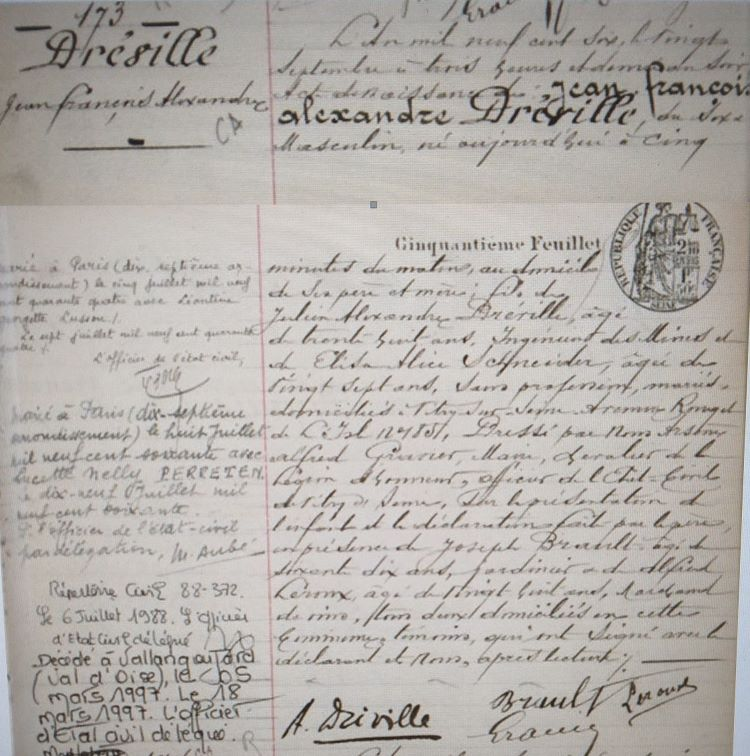 173
Dréville
Jean François Alexandre
CA
L'An mil neuf cent six, le vingt
Septembre à trois heures et demie du Soir
Acte de Naissance de Jean François
Alexandre Dréville, du Sexe
Masculin, né aujourd'hui à cinq
Cinquantième Feuillet
RÉPUBLIQUE FRANÇAISE
minutes du matin, au domicile
de Ses père et mère; fils de
Julien Alexandre Dréville, âgé
de trente huit ans, Ingénieur des Mines et
de Elisa Alice Schneider, âgée de
vingt sept ans, Sans profession, mariés,
domiciliés à Vitry Sur Seine Avenue Rouget
de L'Isle Dressé par Nous Arsène
Alfred Gravier, Maire, Chevalier de la
Légion d'honneur, officier de l'Etat-Civil
de Vitry S/ Seine, Sur la présentation de
l'enfant et la déclaration fait par le père,
en présence de Joseph Brault âgé de
Soixante dix ans, Jardinier et de Alfred
Leroux, âgé de vingt huit ans, Marchand
de vins, tous deux domiciliés en cette
Commune, témoins, qui ont Signé avec le
déclarant et Nous, après lecture;
Marié à Paris (dix septième ar-
rondissement) le cinq juillet mil neuf
cent quarante quatre avec Léontine
Lusson
Le sept juillet mil neuf cent quarante
quatre
L'officier de l'état civil,
Marié à Paris (dix-septième
arrondissement) le huit Juillet
mil neuf cent soixante avec
Lucette Nelly PERRETEN.
Le dix-neuf Juillet mil
neuf cent soixante.
P. l'officier de l'état-civil
par délégation, M. Aubé
Répertoire Civil 88-372.
Le 6 Juillet 1988. L'officier
d'Etat Civil délégué
Décédé à Vallangoujard
(Val d'Oise), le 05
mars 1997. Le 18
mars 1997. L'officier
d'Etat civil délégué.
A. Dréville
Brault
Leroux